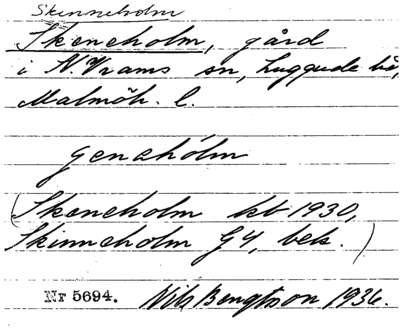 Skenneholm
Skeneholm, gård
i N. Vrams sn, Luggude hd,
Malmöh. l.
(Skeneholm kb 1930,
Skinneholm G4, bebs.)
Nr 5694. Nils Bengtsson 1936.